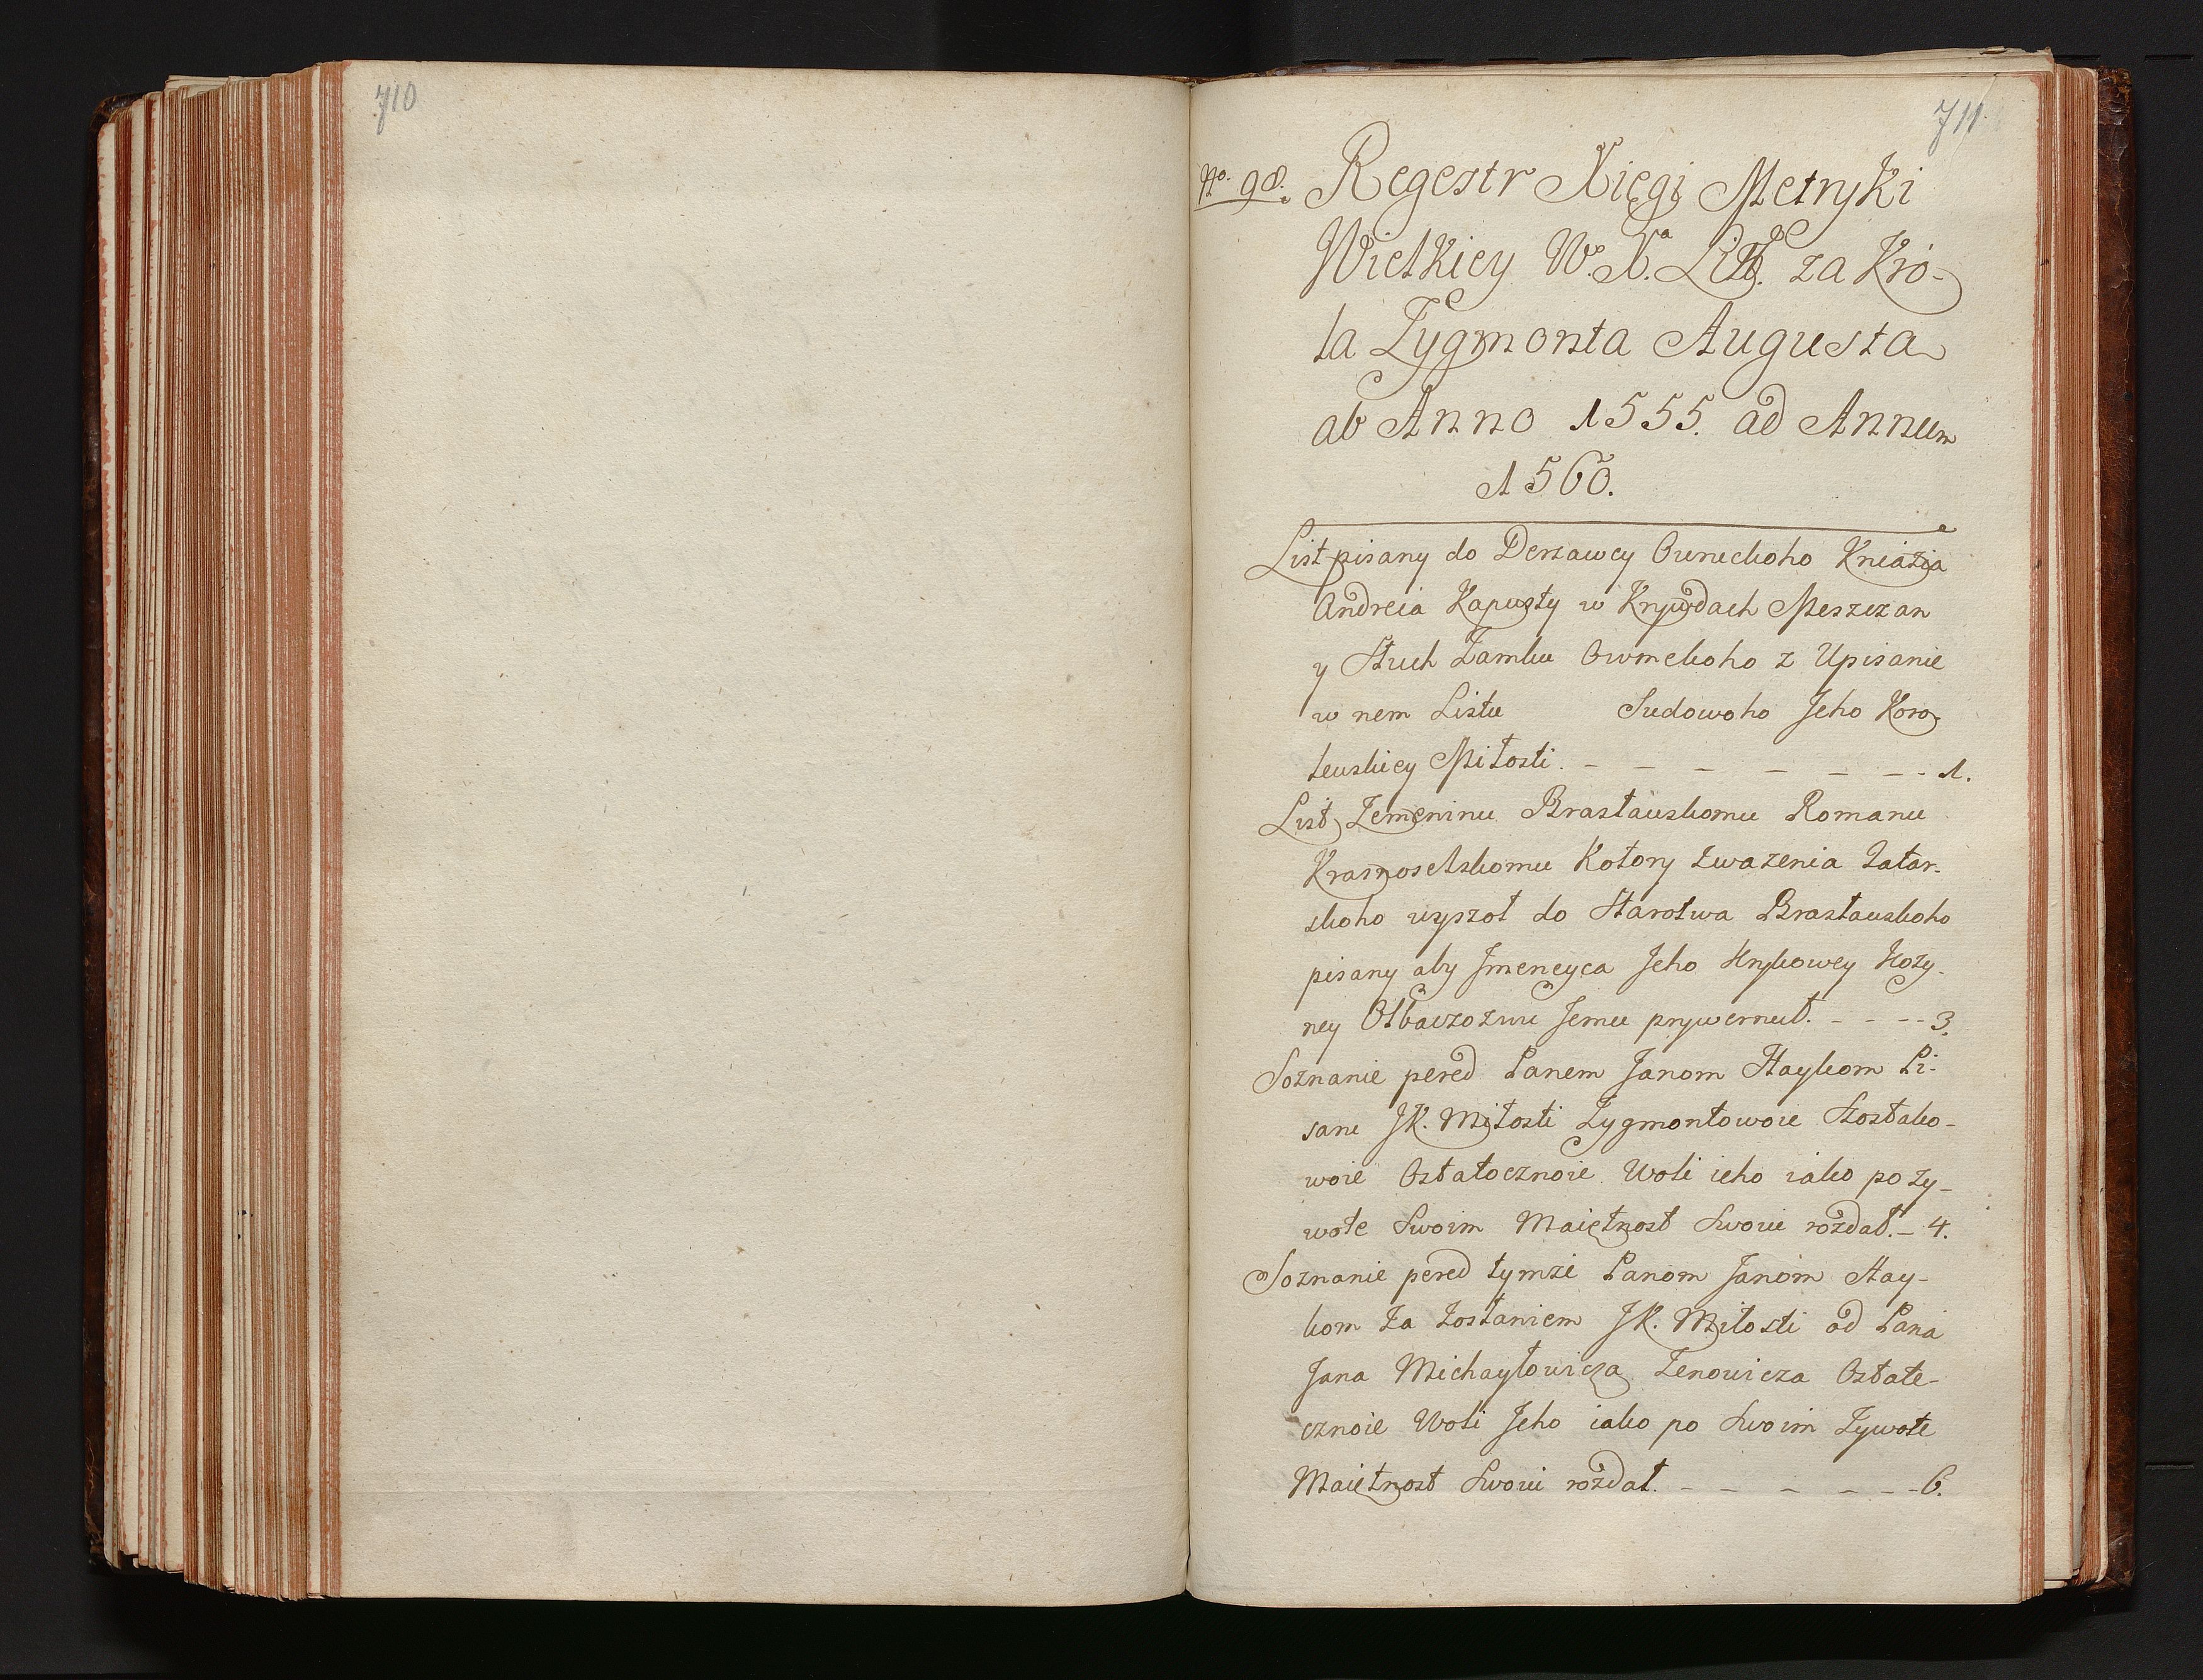 710
711.
No. 98. Regestr Xięgi Metryki
Wielkiey W. Xa. Litt. za Kró-
la Zygmonta Augusta
ab Anno 1555. ad Annum
1560.
List pisany do Derzawcy Owruckoho Kniazia
Andreia Kapusty w Krywdach Meszczan
y Słuch Zamku Owruckoho z Upisanie
w nem Listu Sudowoho Jeho Koro-
lewskiey Miłosti. - - - - - - - 1.
List Zemeninu Brasławskomu Romanu
Krasnoselskomu Kotory zwazenia Tatar-
skoho wyszoł do Starostwa Brasławskoho
pisany aby Jmeneyca Jeho Krykowcy Kozy-
ney Otbaczozwu Jemu prywernuł. - - - - 3.
Soznanie pered Panem Janom Haykom Pi-
sane JK. Miłosti Zygmontowoie Szostako-
woie Ostatocznoie Woli ieho iako po Zy-
wote Swoim Maiętnost Swoui rozdał. - 4.
Soznanie pered tymze Panom Janom Hay-
kom Za Zosłaniem JK. Miłosti od Pana
Jana Michayłowicza Zenowicza Ostate-
cznoie Woli Jeho iako po Swoim Zywote
Maiętnost Swoui rozdał. - - - - - - 6.